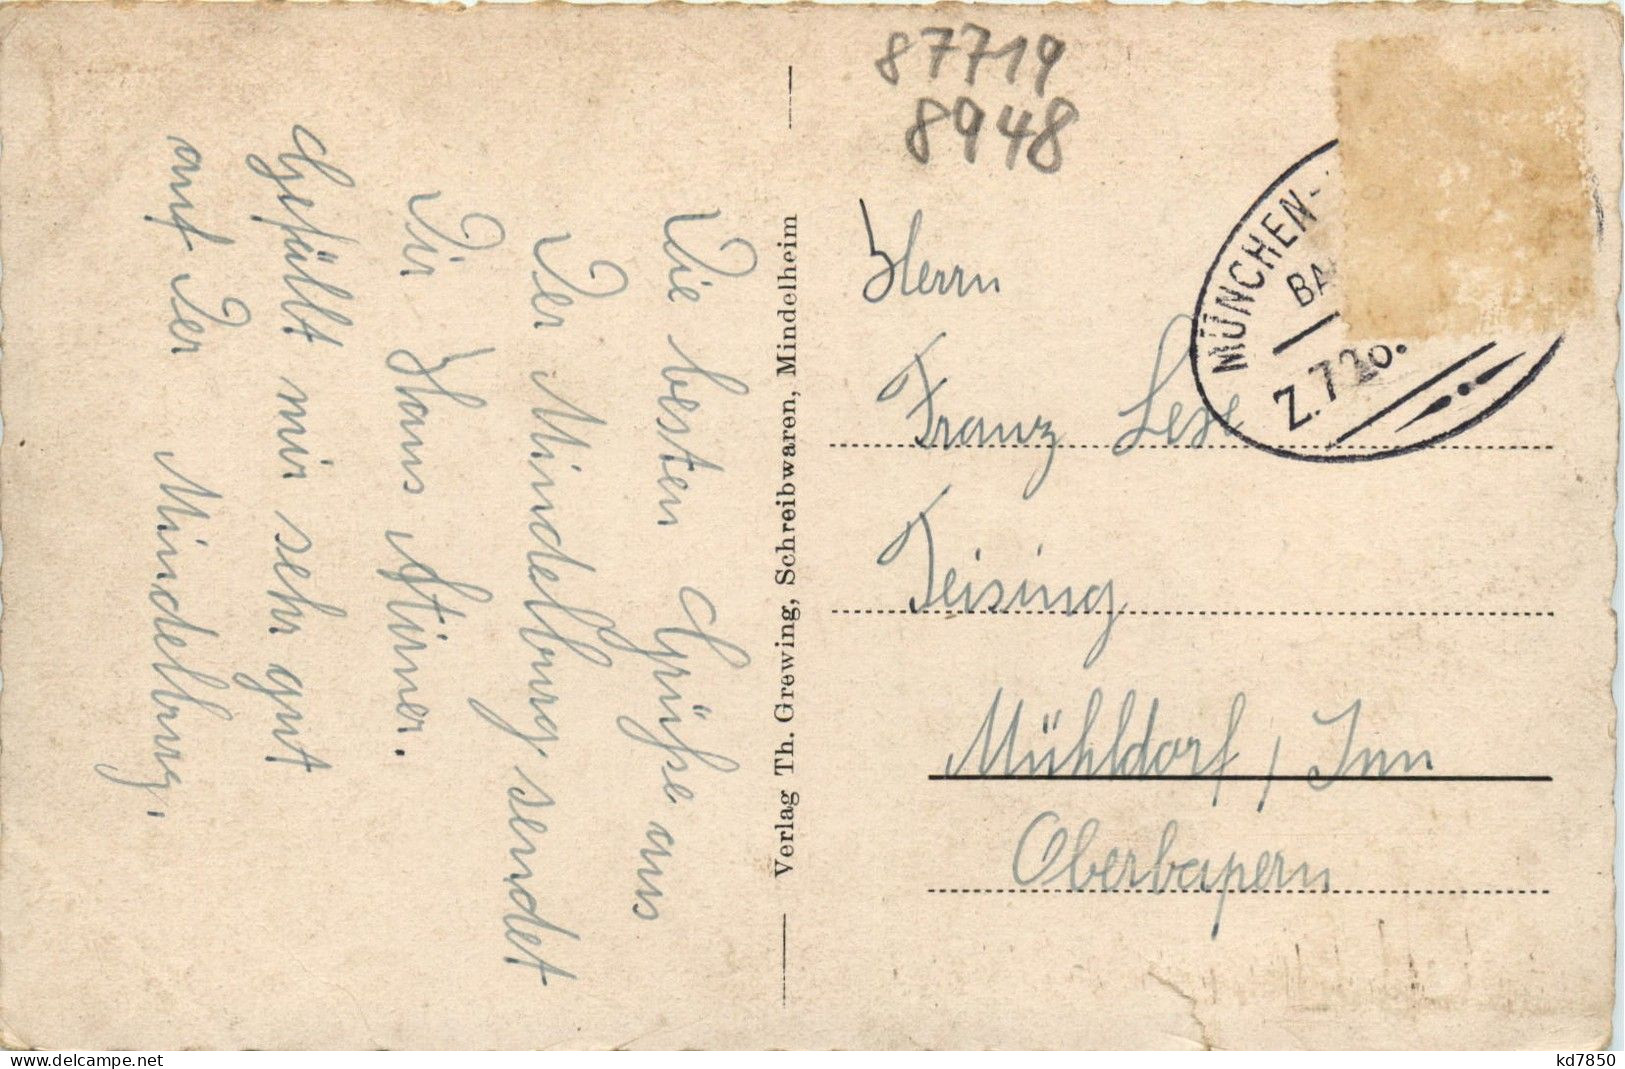 87719
8948
MÜNCHEN-
BA
Z.720.
Die besten Grüße aus
Der Mindelburg sendet
Dir Hans Stirner.
Gefällt mir sehr gut
auf Der Mindelburg.
Verlag Th. Grewing, Schreibwaren, Mindelheim
Herrn
Franz
Teising
Mühldorf / Inn
Oberbayern
delcampe.net
kd7850